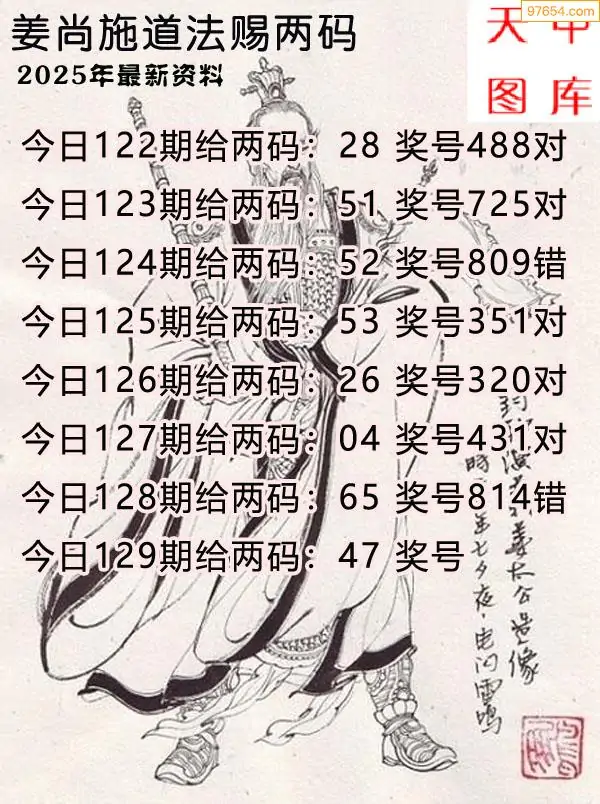 姜尚施道法赐两码
2025年最新资料
97654.com
天中
图库
今日122期给两码：28 奖号488对
今日123期给两码：51 奖号725对
今日124期给两码：52 奖号809错
今日125期给两码：53 奖号351对
今日126期给两码：26 奖号320对
今日127期给两码：04 奖号431对
今日128期给两码：65 奖号814错
今日129期给两码：47 奖号
姜太公造像
七夕夜